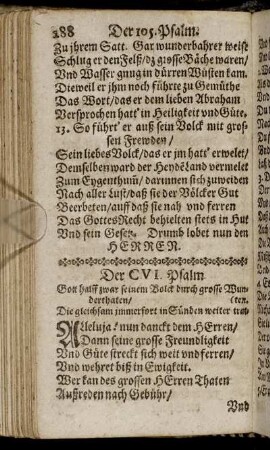 288 Der 105. Psalm.
Zu jhrem Satt. Gar wunderbahrer weise
Schlug er den Felß/ dz grosse Bäche waren/
Vnd Wasser gnug in dürren Wüsten kam.
Dieweil er jhm noch führte zu Gemüthe
Das Wort/ das er dem lieben Abraham
Versprochen hatt' in Heiligkeit und Güte.
13. So führt' er auß sein Volck mit gros-
sen Frewden/
Sein liebes Volck/ das er jm hatt' erwelet/
Demselben ward der Heyden Land vermelet
Zum Eygenthuũ/ darinnen sich zuweiden
Nach aller lust/ daß sie der Völcker Gut
Beerbeten/ auff daß sie nah vnd ferren
Das Gottes Recht behielten stets in Hut
Vnd sein Gesetz. Drumb lobet nun den
HERREN.
Der CVI. Psalm
Gott halff zwar seinem Volck durch grosse Wun-
derthaten/ (ten.
Die gleichsam immerfort in Sünden weiter tra-
Alleluja! nun danckt dem HErren/
Dann seine grosse Freundligkeit
Vnd Güte streckt sich weit vnd ferren/
Vnd wehret biß in Ewigkeit.
Wer kan des grossen HErren Thaten
Außreden nach Gebühr/
Vnd